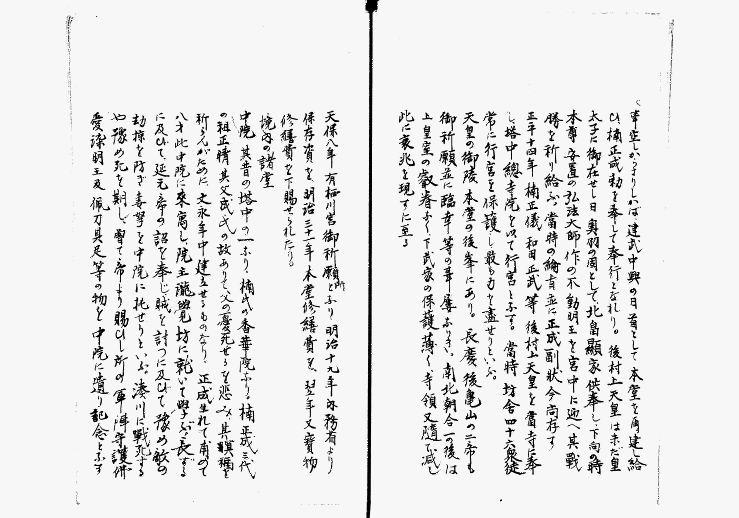 幸在しかりければ建武中興の日首として本堂を再建し給
ひ、楠正成勅を奉して奉行となれり。後村上天皇は未だ皇
太子に御在せし日奥羽の国として北畠顕家供奉し下向の時
本尊安置の弘法大師作の不動明王を宮中に迎へ其戦
勝を祈り給ふ、當時の綸旨並に正成副状今尚存す
正平十四年楠正儀和田正武等後村上天皇を當寺に奉
し塔中總寺院を以て行宮とふする。當時坊舎四十六衆徒
常に行宮を保護し最も力を盡せりといふ。
天皇の御陵本堂の後峯にあり。長慶、後亀山の二帝も
御祈願並に臨幸等の事屡ふりき、南北朝合一の後は
上皇室の叡眷ふく下武家の保護薄く寺領又随て減し
此に衰兆を現すに至る
天保八年有栖川宮御祈願所とふり明治十九年内務省より
保存資を、明治三十一年本堂修繕費を、翌年又寶物
修繕費を下賜せられたり。
境内の諸堂
中院 其昔の塔中の一ふり、楠氏の香華院ふり。楠正成三代
の祖正晴其父成氏の故ありて父の憂死せるを悲み、其冥福を
祈らんがために文永年中建立せるものなり、正成生れて甫めて
八才此中院に来寓し院主瀧覺坊に就いて學ぶ、長ずる
に及びて延元帝の詔を奉じ賊を討つに及びて豫め敵の
劫掠を防ぎ妻孥を中院に托せりといふ。湊川に戰死する
や豫め死を期し、曽て帝より賜ひし所の軍陣守護佛
愛染明王及佩刀具足等の物を中院に遺り記念とふす